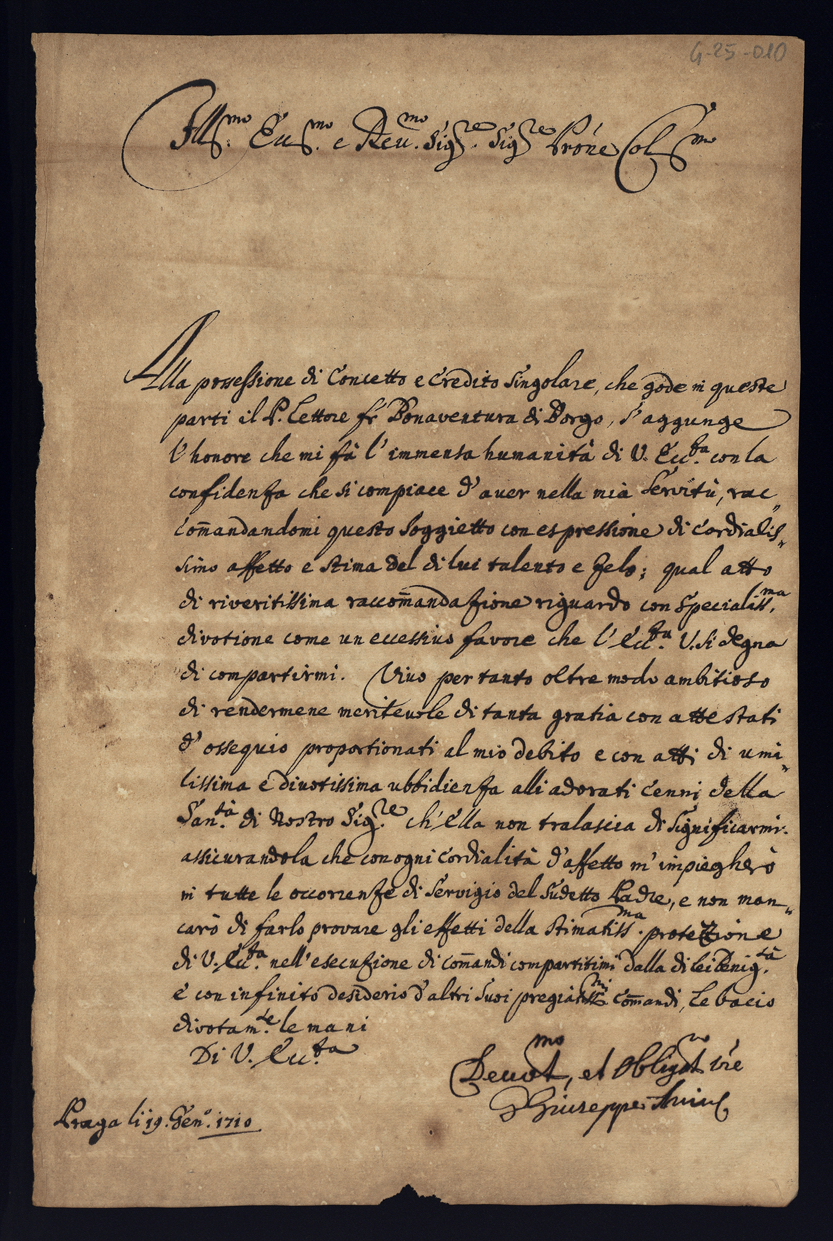 G-25-010
Ill.mo Ecc.mo e Reu.mo Sig.re Sig.re Prone Col.mo
Alla possessione di Concetto e Credito singolare, che gode in queste
parti il P. Lettore fr Bonaventura di Borgo, s'aggunge
l'honore che mi fà l'immensa humanità di V. Ecc.za con la
confidenza che si compiace d'aver nella mia Servitù, rac„
com̃andandomi questo soggietto con espressione di cordialis„
simo affetto e stima del di lui talento e Zelo; qual atto
di riveritissima raccom̃andazione riguardo con specialiss.ma
divotione come un eccessivo favore che l'Ecc.za V. si degna
di compartirmi. Vivo per tanto oltre modo ambitioso
di rendermene meriteuole di tanta gratia con attestati
d'ossequio proportionati al mio debito e con atti di umi„
lissima e diuotissima ubbidienza alli adorati Cenni della
San.tà di Nostro Sig.re ch'Ella non tralascia di significarmi.
assicurandola che con ogni Cordialità d'affetto m'impiegherò
in tutte le occorrenze di Servigio del sudetto Padre, e non man„
carò di farlo provare gli effetti della Stimatiss.ma protezzione
di V. Ecc.za nell'esecuzione di com̃andi compartitimi dalla di lei Benig.tà
e con infinito desiderio d'altri suoi pregiatiss.mi com̃andi, Le bacio
divotam.te le mani
Di V. Ecc.za
Deuot.mo, et Obligat.mo
Giuseppe
Praga li 19. Gen.o 1710